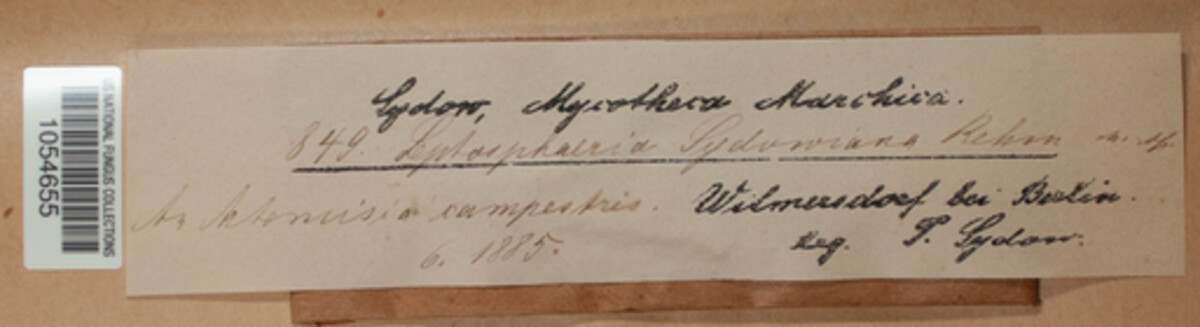 US NATIONAL FUNGUS COLLECTIONS
1054655
Sydow, Mycotheca Marchica.
849. Leptosphaeria Sydowiana Rehm n. sp.
An Artemisia campestris. Wilmersdorf bei Berlin.
6. 1885. Leg. P. Sydow.